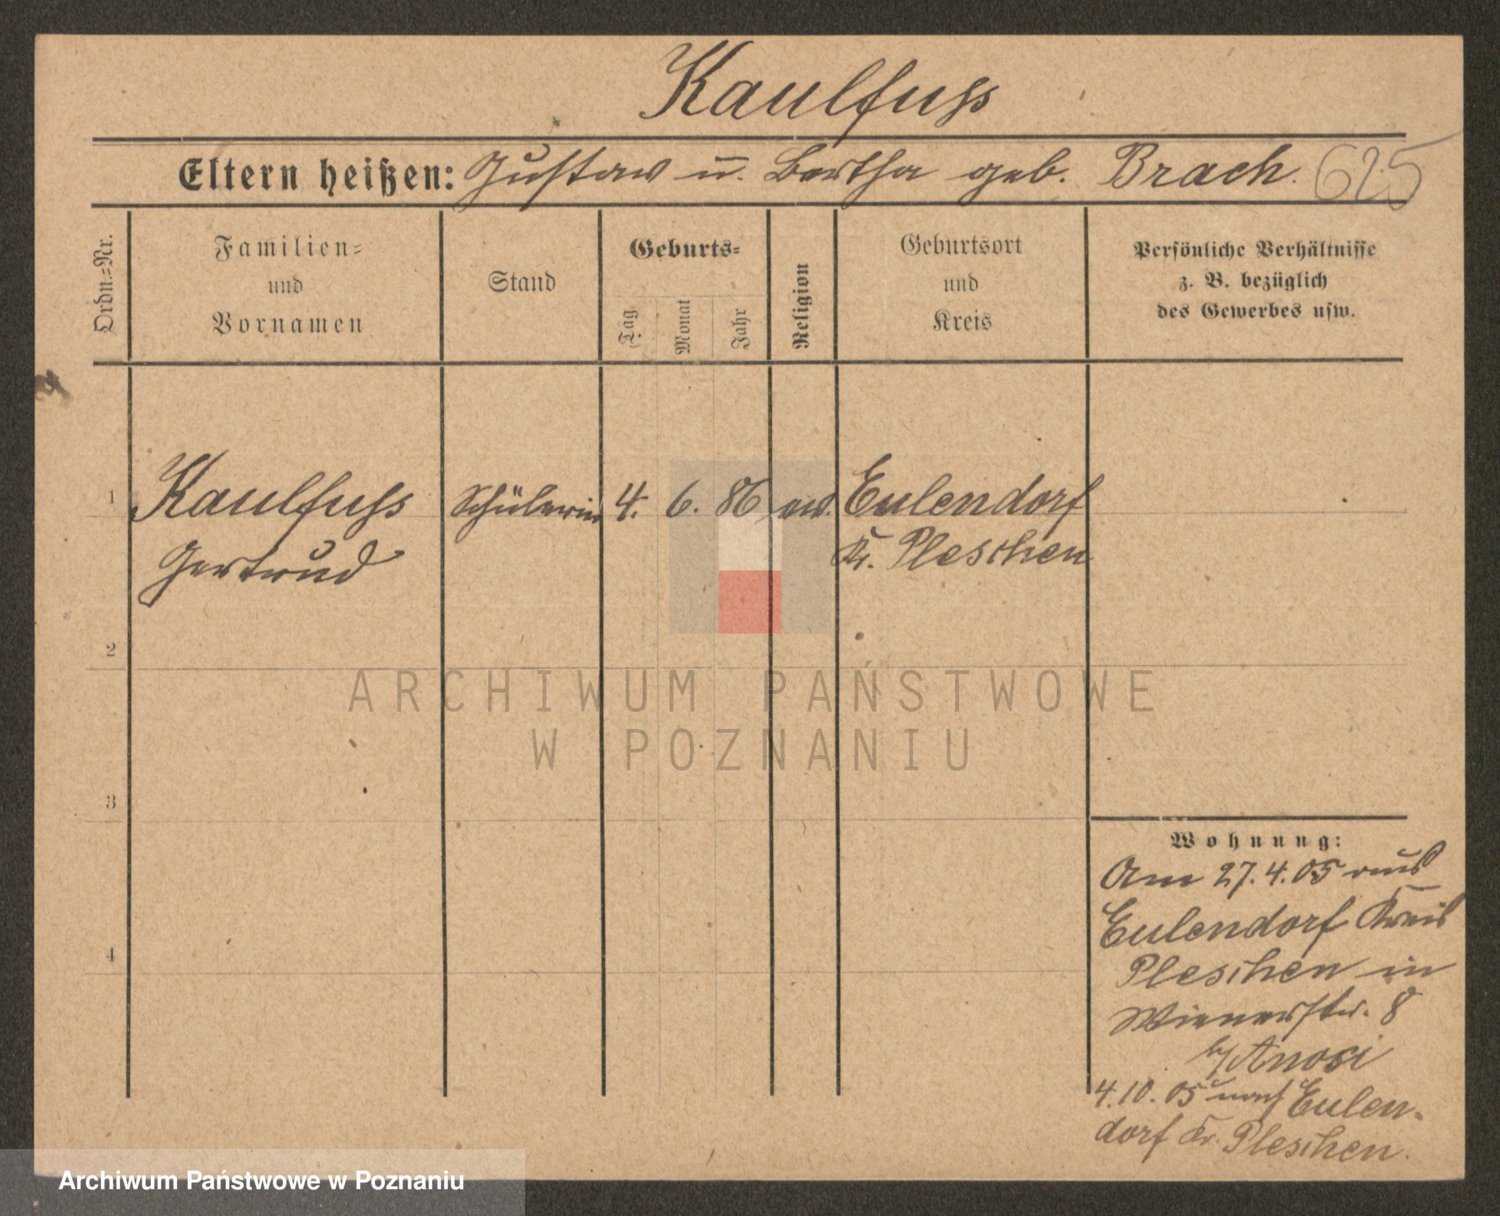 Kaulfuss
Eltern heißen: Gustav u. Bertha geb. Brach. 625
Ordn.=Nr.
Familien=
und
Vornamen
Stand
Geburts=
Tag
Monat
Jahr
Religion
Geburtsort
und
Kreis
Persönliche Verhältnisse
z. B. bezüglich
des Gewerbes usw.
1 Kaulfuss Schülerin 4. 6. 86 ev. Eulendorf
Gertrud Kr. Pleschen
2
3
4
Wohnung:
Am 27.4.05 aus
Eulendorf Kreis
Pleschen in
Wienerstr. 8
b/ Anosi
4.10.05 nach Eulen-
dorf Kr. Pleschen.
ARCHIWUM PAŃSTWOWE
W POZNANIU
Archiwum Państwowe w Poznaniu